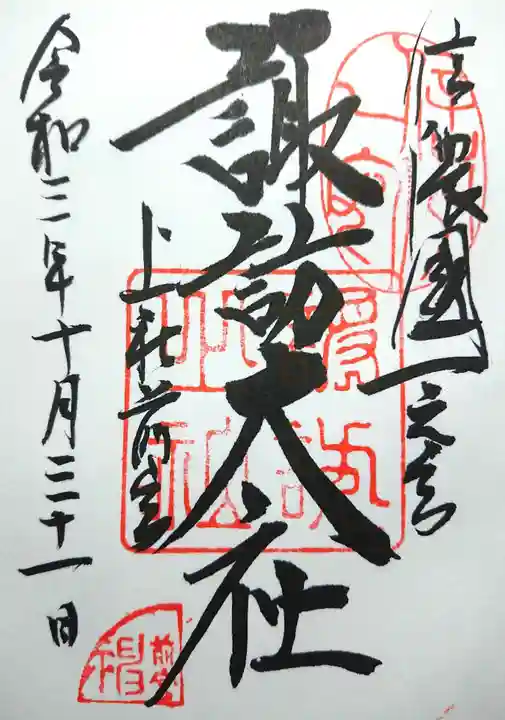 信濃國一之宮
諏訪大社
上社前宮
令和三年十月三十一日